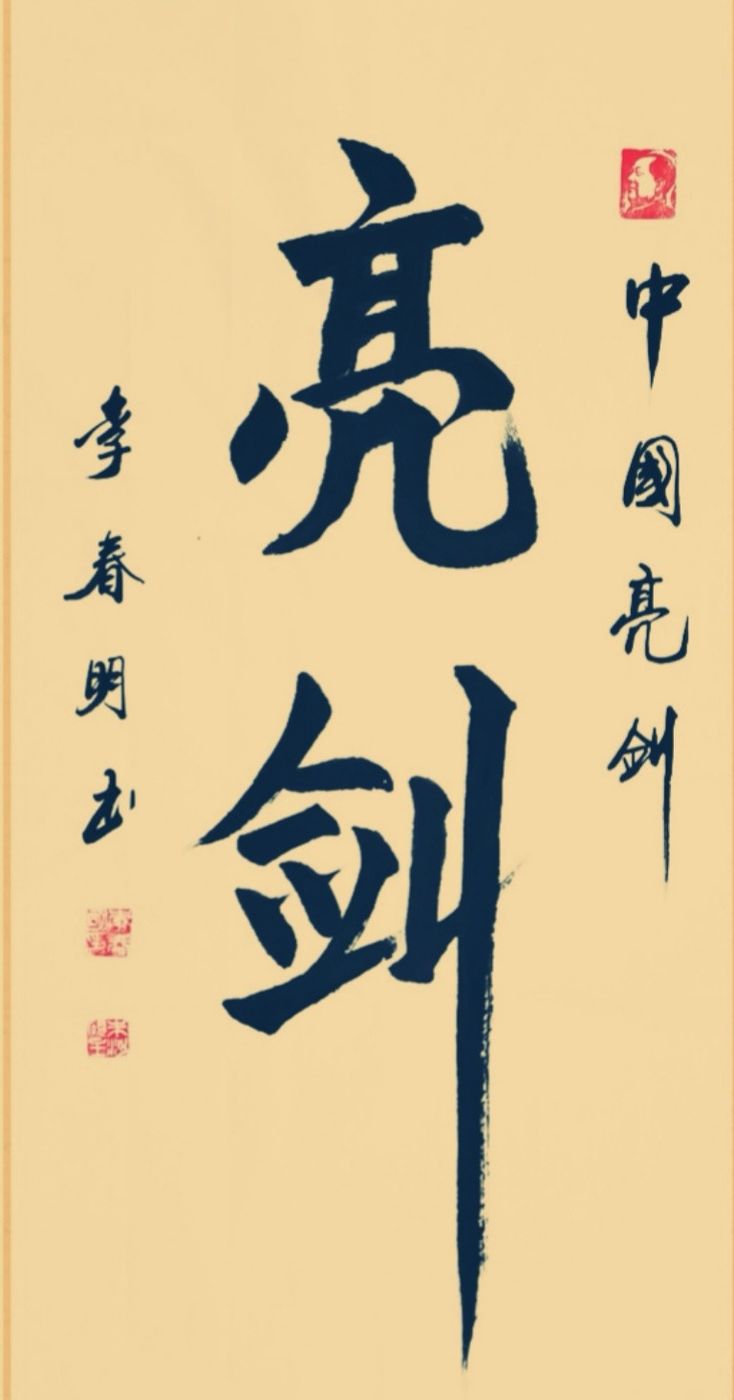 中國亮剑
亮剑
李春明书